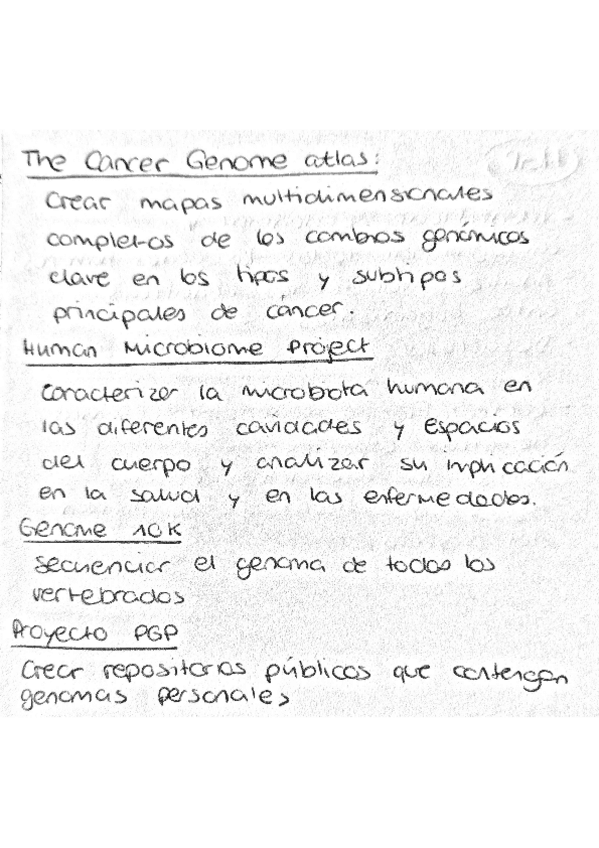 The Cancer Genome atlas:
Crear mapas multidimensionales
completos de los cambios genómicos
clave en los tipos y subtipos
principales de cáncer.
Human Microbiome Project
Caracterizar la microbiota humana en
las diferentes cavidades y Espacios
del cuerpo y analizar su implicación
en la salud y en las enfermedades.
Genome 10K
Secuenciar el genoma de todos los
vertebrados
Proyecto PGP
Crear repositorios públicos que contengan
genomas personales